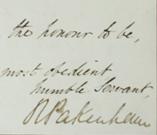 the honour to be,
most obedient
humble Servant,
R Pakenham